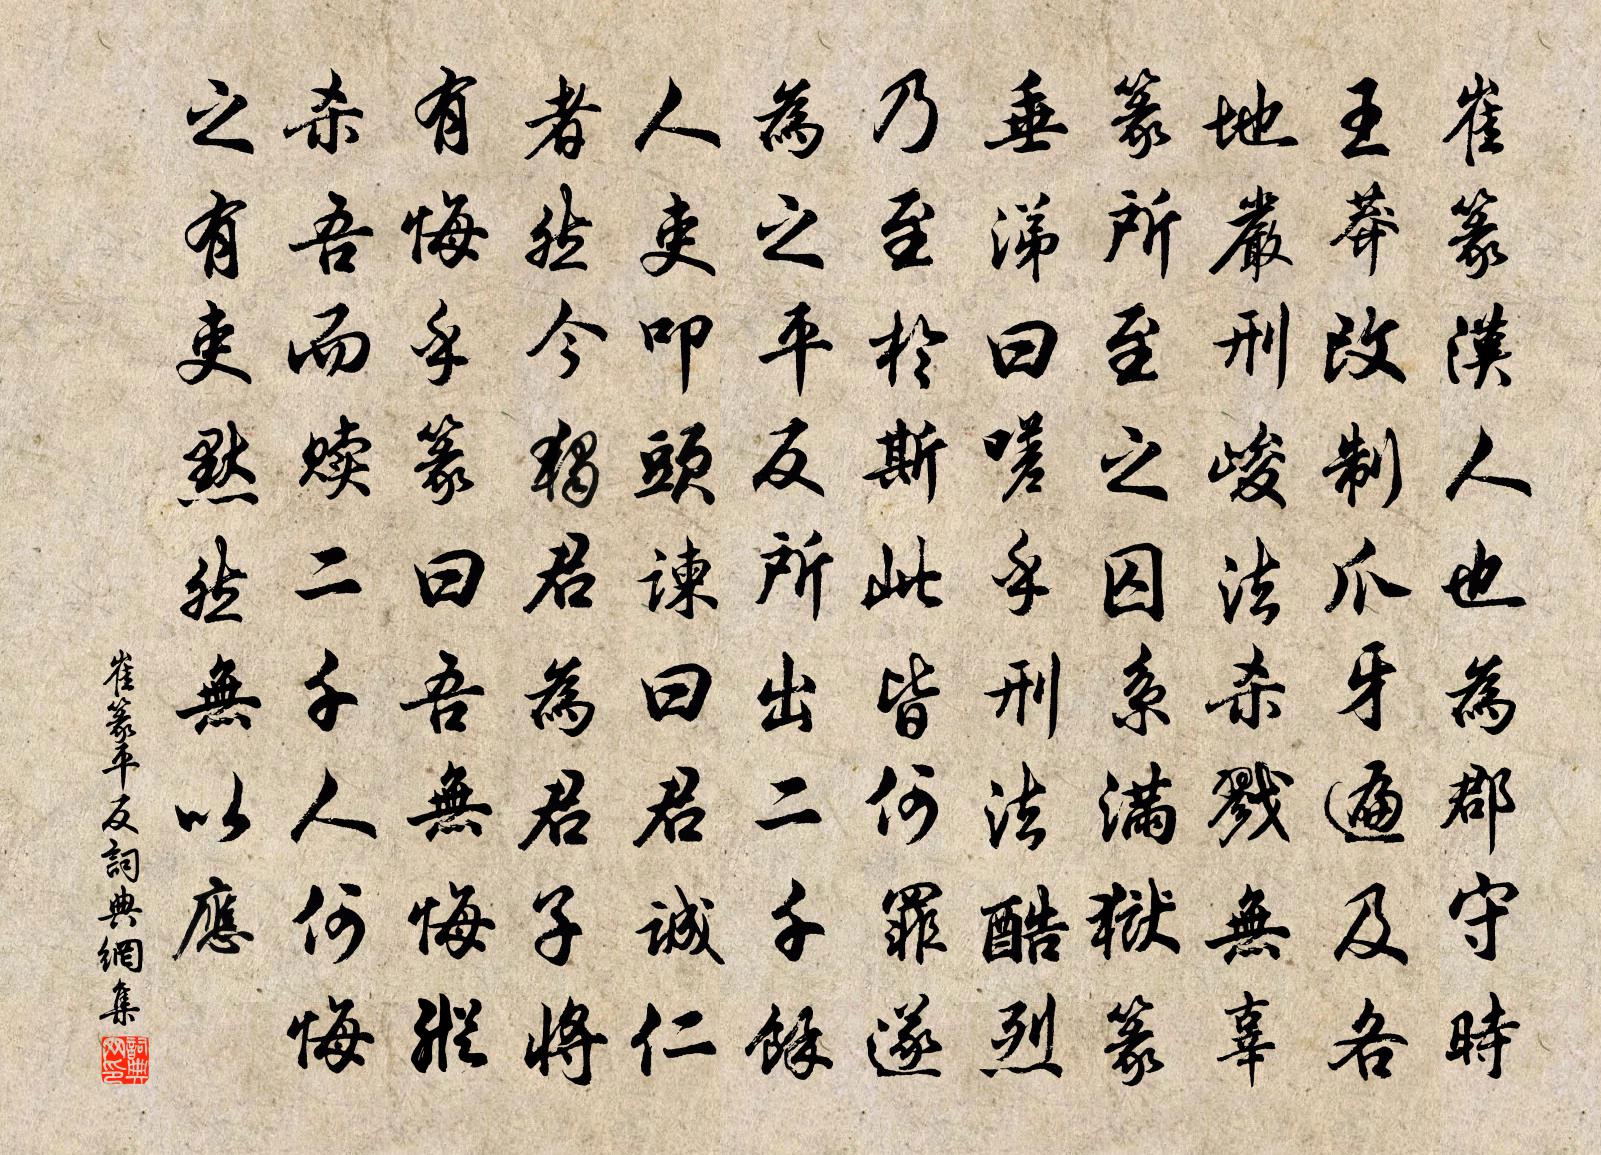 崔篆漢人也為郡守時
王莽改制爪牙遍及各
地嚴刑峻法杀戮無辜
篆所至之囚系滿獄篆
垂涕曰嗟乎刑法酷烈
乃至於斯此皆何罪遂
為之平反所出二千餘
人吏叩頭諫曰君誠仁
者然今獨君為君子將
有悔乎篆曰吾無悔縱
杀吾而赎二千人何悔
之有吏默然無以應
崔篆平反詞典網集
詞典网印